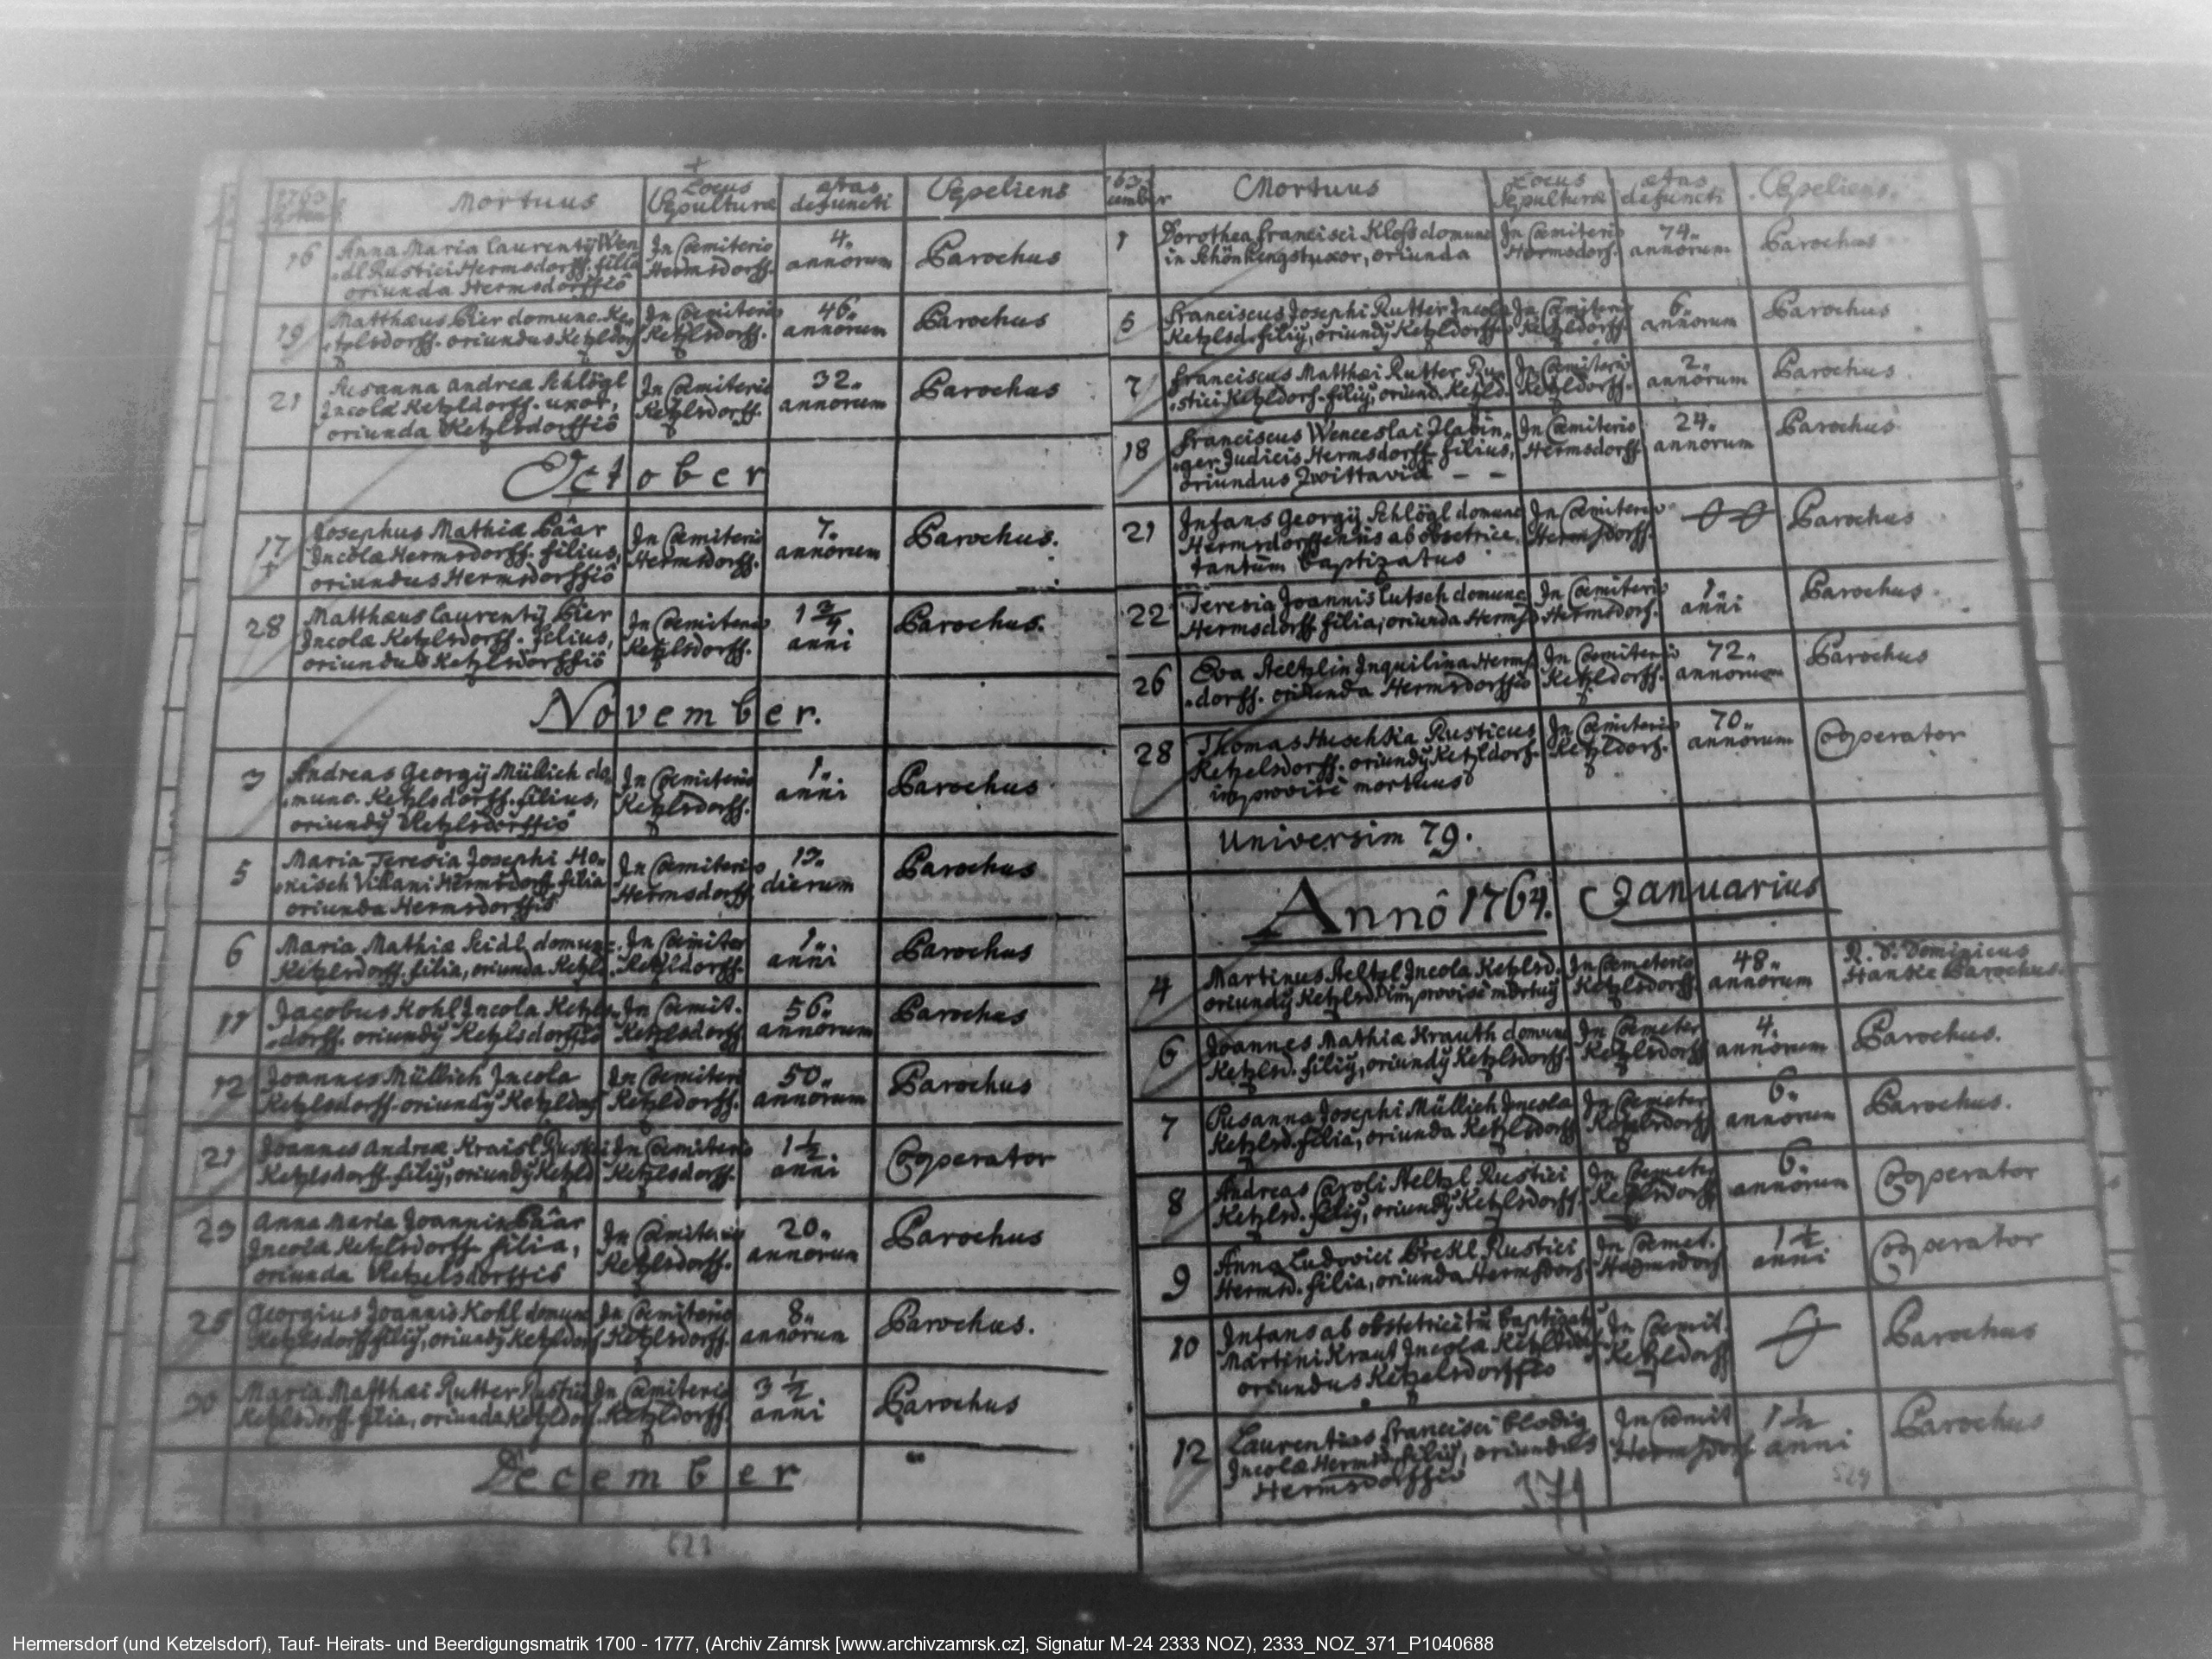 1763
Mortuus
Locus
Sepulturæ
ætas
defuncti
Sepeliens
16
Anna Maria Laurentij Wen
dl Rustici Hermsdorff. filia
oriunda Hermsdorffio
In Cæmiterio
Hermsdorff.
4.
annorum
Parochus
19
Matthæus Bier domunc. Ke-
tzlsdorff. oriundus Ketzldorf
In Cæmiterio
Ketzlsdorff.
46.
annorum
Parochus
21
Susanna Andrea Schlögl
Incolæ Ketzldorff. uxor,
oriunda Ketzlsdorffio
In Cæmiterio
Ketzlsdorff.
32.
annorum
Parochus
October
17
Josephus Mathiæ Päar
Incolæ Hermsdorff. filius,
oriundus Hermsdorffio
In Cæmiterio
Hermsdorff.
7.
annorum
Parochus.
28
Matthæus Laurentij Bier
Incolæ Ketzlsdorff. filius,
oriundus Ketzlsdorffio
In Cæmiterio
Ketzlsdorff.
1 3/4
anni
Parochus.
November.
3
Andreas Georgij Müllich do
munc. Ketzlsdorff. filius,
oriundy Ketzlsdorffio
In Cæmiterio
Ketzlsdorff.
1.
anni
Parochus
5
Maria Teresia Josephi Ho-
nisch Villani Hermsdorf. filia
oriunda Hermsdorffio
In Cæmiterio
Hermsdorff
13.
dierum
Parochus
6
Maria Mathiæ Seidl domunc.
Ketzlsdorff. filia, oriunda Ketzls.
In Cæmiter
Ketzldorff.
1.
anni
Parochus
11
Jacobus Kohl Incola Ketzls
dorff. oriundy Ketzlsdorffio
In Cæmit.
Ketzlsdorff
56.
annorum
Parochus
12
Joannes Müllich Incola
Ketzlsdorff. oriundy Ketzldorf
In Cæmiteri
Ketzldorff.
50.
annorum
Parochus
21
Joannes Andreæ Kraisl Rustici
Ketzlsdorff. filiy, oriundy Ketzld
In Cæmiterio
Ketzlsdorff.
1 1/2.
anni
Cooperator
23
Anna Maria Joannis Päar
Incolæ Ketzlsdorff. filia,
oriunda Ketzelsdorffio
In Cæmiterio
Ketzlsdorff.
20.
annorum
Parochus
25
Georgius Joannis Kohl domunc
Ketzlsdorff filiy, oriundy Ketzldorf
In Cæmiterio
Ketzlsdorff.
8.
annorum
Parochus.
30
Maria Matthæi Rutter Rustici
Ketzlsdorff. filia, oriunda Ketzldorf.
In Cæmiterio
Ketzldorff.
3 1/2
anni
Parochus
December
Mortuus
Locus
Sepulturæ
ætas
defuncti
Sepeliens.
1
Dorothea Francisci Kloss domunc
in Schönhengst uxor, oriunda
In Cæmiterio
Hermsdorf.
74.
annorum
Parochus
5
Franciscus Josephi Rutter Incolæ
Ketzlsd. filiy, oriundy Ketzldorffio
In Cæmiterio
Ketzldorff.
6.
annorum
Parochus
7
Franciscus Matthæi Rutter Ru-
stici Ketzldorf. filiy, oriund. Ketzld.
In Cæmiterio
Ketzldorff.
2.
annorum
Parochus
18
Franciscus Wenceslai
ger Judicis Hermsdorff. filius,
oriundus Zwittavia — —
In Cæmiterio
Hermsdorff
24.
annorum
Parochus
21
Infans Georgij Schlögl domunc
Hermsdorffensis ab obsetrice
tantum baptizatus
In Cæmiterio
Hermsdorff.
Parochus
22
Teresia Joannis Lutsch domunc
Hermsdorff filia, oriunda Hermsd
In Cæmiterio
Hermsdorf.
1.
anni
Parochus
26
Eva Aeltzlin Inquilina Herms
dorff. oriunda Hermsdorffio
In Cæmiterio
Ketzldorff.
72.
annorum
Parochus
28
Thomas Huschka Rusticus
Ketzelsdorff. oriundy Ketzldorf.
improvisè mortuus
In Cæmiterio
Ketzldorf.
70.
annorum
Cooperator
Universim 79.
Annô 1764. Januarius
4
Martinus Aeltzl Incola Ketzlsd.
oriundy Ketzlsd. improvisè mortuy
In Cæmeterio
Ketzlsdorff.
48.
annorum
R. D. Dominicus
Hanke Parochus.
6
Joannes Mathiæ Krauth domunc
Ketzlsd. filiy, oriundy Ketzlsdorff.
In Cæmeter
Ketzlsdorff
4.
annorum
Parochus.
7
Susanna Josephi Müllich Incolæ
Ketzlsd. filia, oriunda Ketzlsdorff
In Cæmeter
Ketzlsdorff
6.
annorum
Parochus.
8
Andreas Caroli Aeltzl Rustici
Ketzlsd. filiy, oriundy Ketzlsdorff
In Cæmeter
Ketzlsdorff
6.
annorum
Cooperator
9
Anna Ludovici Brekl Rustici
Hermsd. filia, oriunda Hermsdorf.
In Cæmet.
Hermsdorf
1 1/2
anni
Cooperator
10
Infans ab obstetrice tm baptizaty
Martini Kraut Incolæ Ketzlsdorf
oriundus Ketzelsdorffio
In Cæmit.
Ketzldorff
Parochus
12
Laurentius Francisci Blodig
Incolæ Hermsd. filiy, oriundus
Hermsdorffio
In Cæmit
Hermsdorf
1 1/2
anni
Parochus
371
529
Hermersdorf (und Ketzelsdorf), Tauf- Heirats- und Beerdigungsmatrik 1700 - 1777, (Archiv Zámrsk [www.archivzamrsk.cz], Signatur M-24 2333 NOZ), 2333_NOZ_371_P1040688